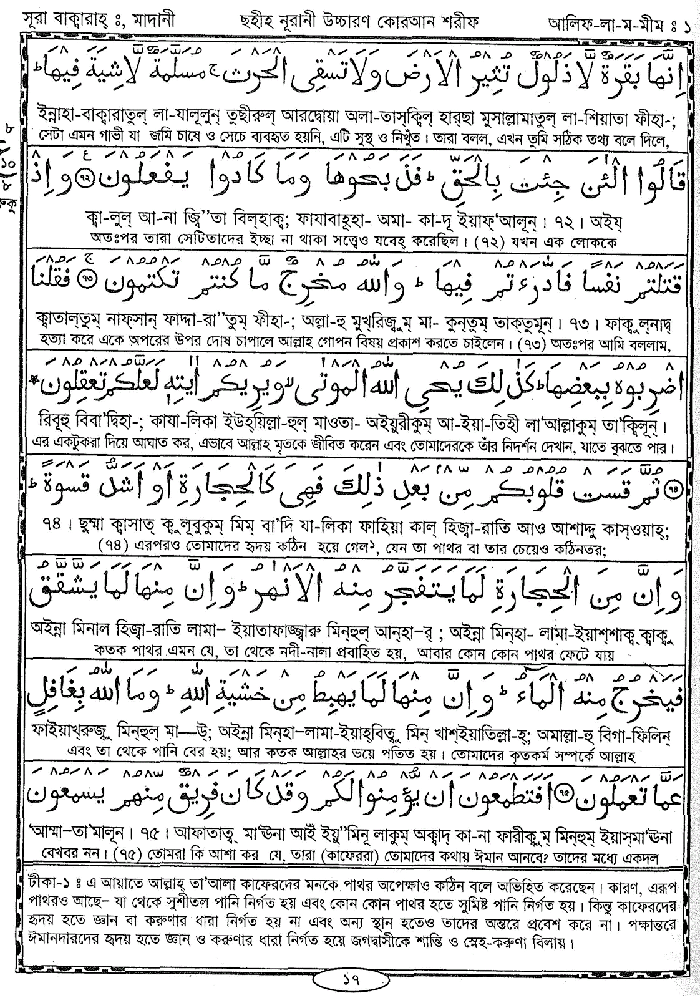 সূরা বাক্বারাহ্ ঃ, মাদানী ছহীহ নূরানী উচ্চারণ কোরআন শরীফ আলিফ-লা-ম-মীম ঃ ১
اِنَّهَا بَقَرَةٌ لَّا ذَلُوْلٌ تُثِيْرُ الْاَرْضَ وَلَا تَسْقِى الْحَرْثَ ۚ مُسَلَّمَةٌ لَّاشِيَةَ فِيْهَا ؕ
ইন্নাহা-বাক্বারাতুল্ লা-যালূলুন্ তুছীরুল্ আরদ্বোয়া অলা-তাস্ক্বিল্ হার্ছা মুসাল্লামাতুল্ লা-শিয়াতা ফীহা-;
সেটা এমন গাভী যা জমি চাষে ও সেচে ব্যবহৃত হয়নি, এটি সুস্থ ও নিখুঁত। তারা বলল, এখন তুমি সঠিক তথ্য বলে দিলে,
قَالُوا الْـٰٔنَ جِئْتَ بِالْحَقِّ ؕ فَذَبَحُوْهَا وَمَا كَادُوْا يَفْعَلُوْنَ ۝٧١ وَاِذْ
ক্বা-লুল্ আ-না জ্বি"তা বিল্হাক্ব; ফাযাবাহূহা- অমা- কা-দূ ইয়াফ্'আলূন্। ৭২। অইয্
অতঃপর তারা সেটিতাদের ইচ্ছা না থাকা সত্ত্বেও যবেহ্ করেছিল। (৭২) যখন এক লোককে
قَتَلْتُمْ نَفْسًا فَادّٰرَءْتُمْ فِيْهَا ؕ وَاللّٰهُ مُخْرِجٌ مَّا كُنْتُمْ تَكْتُمُوْنَ ۝٧٢ۚ فَقُلْنَا
ক্বাতাল্তুম্ নাফ্সান্ ফাদ্দা-রা"তুম্ ফীহা-; অল্লা-হু মুখ্রিজুম্ মা- কুন্তুম্ তাক্তুমূন্। ৭৩। ফাক্বুল্নাদ্ব্
হত্যা করে একে অপরের উপর দোষ চাপালে আল্লাহ গোপন বিষয় প্রকাশ করতে চাইলেন। (৭৩) অতঃপর আমি বললাম,
اضْرِبُوْهُ بِبَعْضِهَا ؕ كَذٰلِكَ يُحْىِ اللّٰهُ الْمَوْتٰى ۙ وَيُرِيْكُمْ اٰيٰتِهٖ لَعَلَّكُمْ تَعْقِلُوْنَ ۝
রিবূহু বিবা'দ্বিহা-; কাযা-লিকা ইউহ্য়িল্লা-হুল্ মাওতা- অইয়ুরীকুম্ আ-ইয়া-তিহী লা'আল্লাকুম্ তা'ক্বিলূন্।
এর একটুকরা দিয়ে আঘাত কর, এভাবে আল্লাহ মৃতকে জীবিত করেন এবং তোমাদেরকে তাঁর নিদর্শন দেখান, যাতে বুঝতে পার।
۝٧٣ ثُمَّ قَسَتْ قُلُوْبُكُمْ مِّنْ بَعْدِ ذٰلِكَ فَهِىَ كَالْحِجَارَةِ اَوْ اَشَدُّ قَسْوَةً ؕ
৭৪। ছুম্মা ক্বাসাত্ ক্বুলূবুকুম্ মিম্ বা'দি যা-লিকা ফাহিয়া কাল্ হিজ্বা-রাতি আও আশাদ্দু কাস্ওয়াহ্;
(৭৪) এরপরও তোমাদের হৃদয় কঠিন হয়ে গেল¹, যেন তা পাথর বা তার চেয়েও কঠিনতর;
وَاِنَّ مِنَ الْحِجَارَةِ لَمَا يَتَفَجَّرُ مِنْهُ الْاَنْهٰرُ ؕ وَاِنَّ مِنْهَا لَمَا يَشَّقَّقُ
অইন্না মিনাল হিজ্বা-রাতি লামা- ইয়াতাফাজ্জ্বারু মিন্হুল্ আন্হা-র্ ; অইন্না মিন্হা- লামা-ইয়াশ্শাক্বক্বাক্বু
কতক পাথর এমন যে, তা থেকে নদী-নালা প্রবাহিত হয়, আবার কোন কোন পাথর ফেটে যায়
فَيَخْرُجُ مِنْهُ الْمَآءُ ؕ وَاِنَّ مِنْهَا لَمَا يَهْبِطُ مِنْ خَشْيَةِ اللّٰهِ ؕ وَمَا اللّٰهُ بِغَافِلٍ
ফাইয়াখ্রুজু মিন্হুল্ মা—উ্; অইন্না মিন্হা-লামা-ইয়াহ্বিতু মিন্ খাশ্ইয়াতিল্লা-হ্; অমাল্লা-হু বিগা-ফিলিন্
এবং তা থেকে পানি বের হয়; আর কতক আল্লাহর ভয়ে পতিত হয়। তোমাদের কৃতকর্ম সম্পর্কে আল্লাহ
عَمَّا تَعْمَلُوْنَ ۝٧٤ اَفَتَطْمَعُوْنَ اَنْ يُّؤْمِنُوْا لَكُمْ وَقَدْ كَانَ فَرِيْقٌ مِّنْهُمْ يَسْمَعُوْنَ
'আম্মা-তা'মালূন। ৭৫। আফাতাত্ব্ মা'ঊনা আইঁ ইয়ু"মিনূ লাকুম্ অক্বাদ্ কা-না ফারীক্বুম্ মিন্হুম্ ইয়াস্মা'ঊনা
বেখবর নন। (৭৫) তোমরা কি আশা কর যে, তারা (কাফেররা) তোমাদের কথায় ঈমান আনবে? তাদের মধ্যে একদল
টীকা-১ ঃ এ আয়াতে আল্লাহ্ তা'আলা কাফেরদের মনকে পাথর অপেক্ষাও কঠিন বলে অভিহিত করেছেন। কারণ, এরূপ
পাথরও আছে– যা থেকে সুশীতল পানি নির্গত হয় এবং কোন কোন পাথর হতে সুমিষ্ট পানি নির্গত হয়। কিন্তু কাফেরদের
হৃদয় হতে জ্ঞান বা করুণার ধারা নির্গত হয় না এবং অন্য স্থান হতেও তাদের অন্তরে প্রবেশ করে না। পক্ষান্তরে
ঈমানদারদের হৃদয় হতে জ্ঞান ও করুণার ধারা নির্গত হয়ে জগদ্বাসীকে শান্তি ও স্নেহ-করুণা বিলায়।
১৭